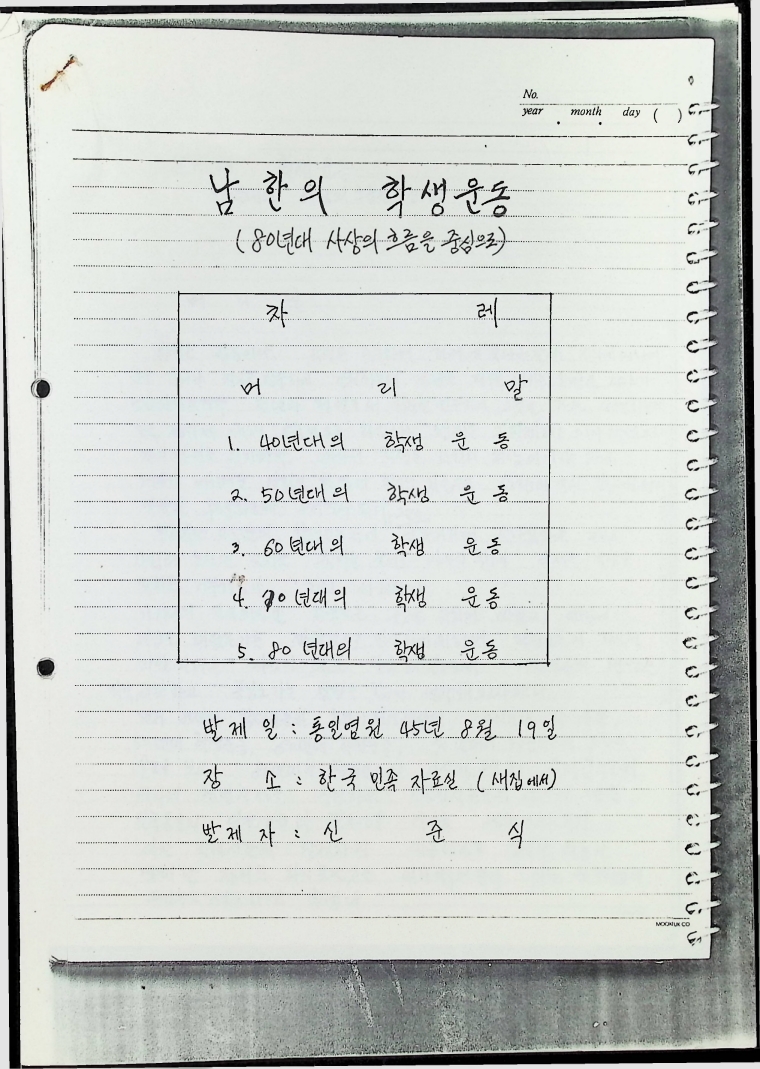 No.
year . month . day ( )
남한의 학생운동
(80년대 사상의 흐름을 중심으로)
차 례
머 리 말
1. 40년대의 학생 운 동
2. 50년대의 학생 운 동
3. 60년대의 학생 운동
4. 70년대의 학생 운동
5. 80년대의 학생 운동
발제일 : 통일염원 45년 8월 19일
장 소 : 한국 민족 자료실 (새집에서)
발제자 : 신 준 식